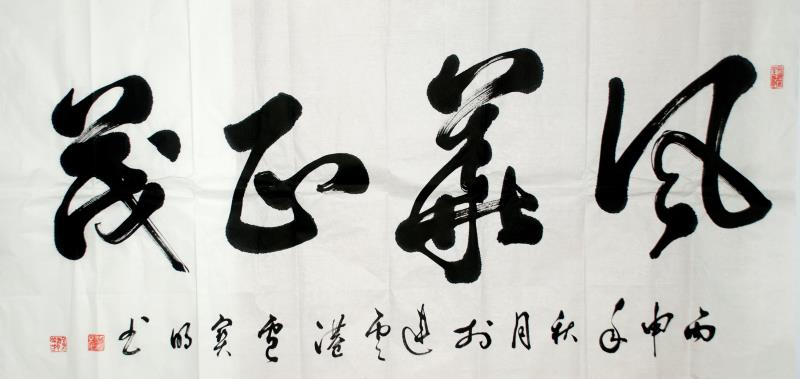 風華正茂
丙申年秋月於連雲港寶明書